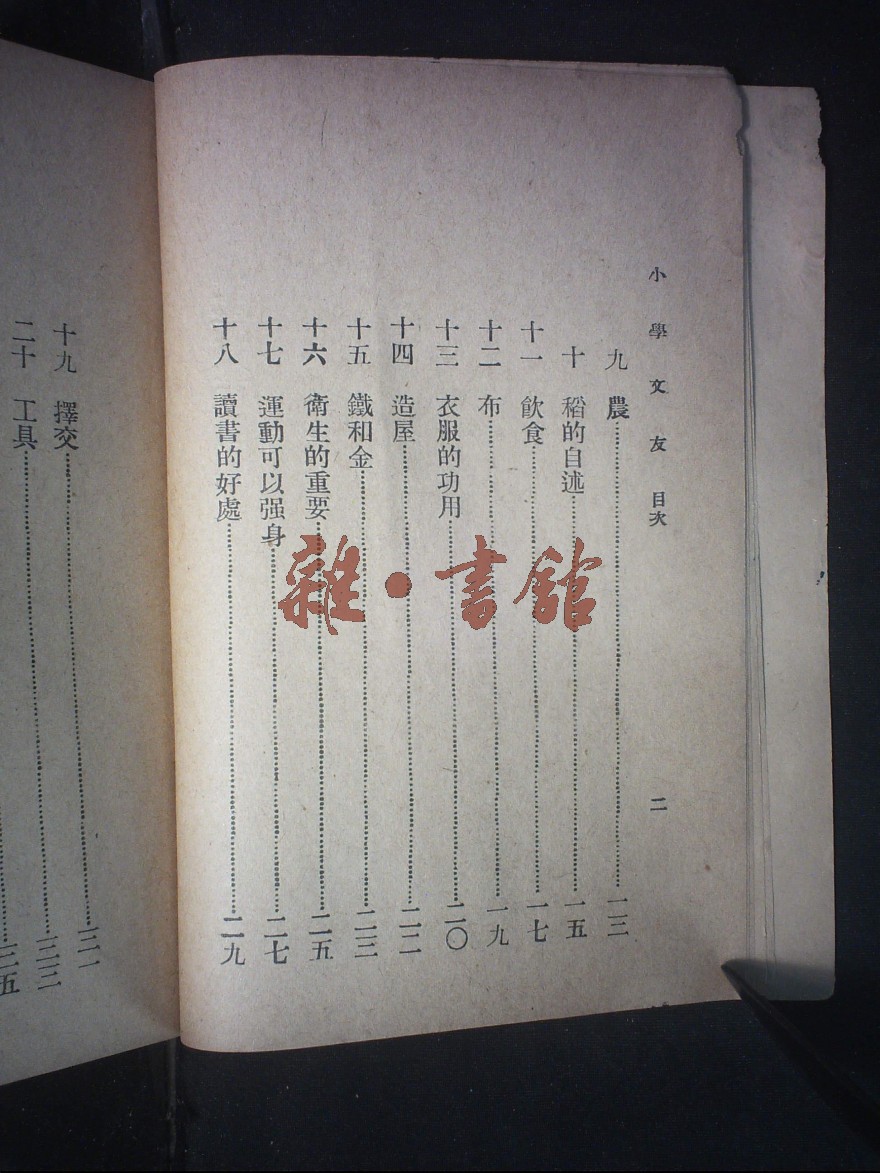 小學文友 目次 二
九 農 一三
十 稻的自述 一五
十一 飲食 一七
十二 布 一九
十三 衣服的功用 二〇
十四 造屋 二二
十五 鐵和金 二三
十六 衛生的重要 二五
十七 運動可以强身 二七
十八 讀書的好處 二九
十九 擇交 三一
二十 工具 三三
三五
雜·書館